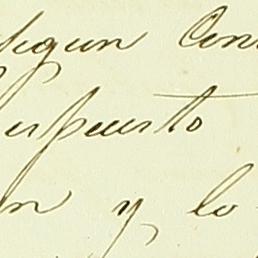 segun Cen
puesto
n y lo